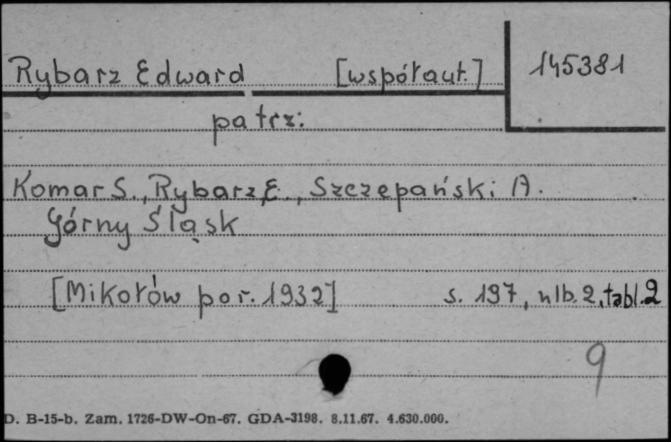 Rybarz Edward [współaut.] 145381
patrz:
Komar S., Rybarz E., Szczepański A.
Górny Śląsk
[Mikołów por. 1932] s. 197, nlb. 2, tabl. 2
9
D. B-15-b. Zam. 1726-DW-On-67. GDA-3198. 8.11.67. 4.630.000.